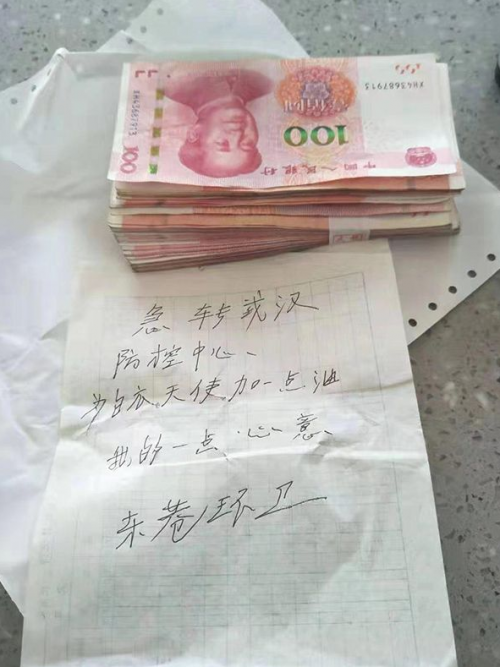 100
中国人民银行
100
XH43687913
急转武汉
防控中心、
为白衣天使加一点油
我的一点心意
东巷环卫